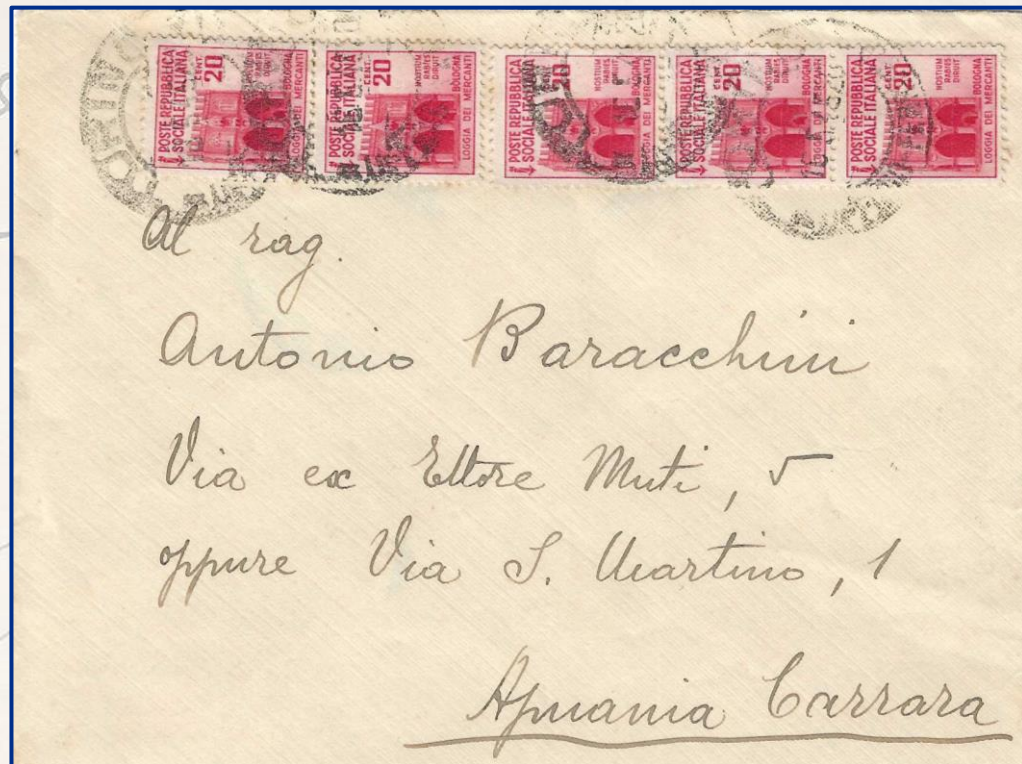 TORINO
POSTE REPUBBLICA
SOCIALE ITALIANA
CENT. 20
HOSTIUM
RABIES
DIRUIT
BOLOGNA
LOGGIA DEI MERCANTI
POSTE REPUBBLICA
SOCIALE ITALIANA
CENT. 20
HOSTIUM
RABIES
DIRUIT
BOLOGNA
LOGGIA DEI MERCANTI
POSTE REPUBBLICA
SOCIALE ITALIANA
CENT. 20
HOSTIUM
RABIES
DIRUIT
BOLOGNA
LOGGIA DEI MERCANTI
POSTE REPUBBLICA
SOCIALE ITALIANA
CENT. 20
HOSTIUM
RABIES
DIRUIT
BOLOGNA
LOGGIA DEI MERCANTI
POSTE REPUBBLICA
SOCIALE ITALIANA
CENT. 20
HOSTIUM
RABIES
DIRUIT
BOLOGNA
LOGGIA DEI MERCANTI
Al rag.
Antonio Baracchini
Via ex Ettore Muti, 5
oppure Via S. Martino, 1
Apuania Carrara